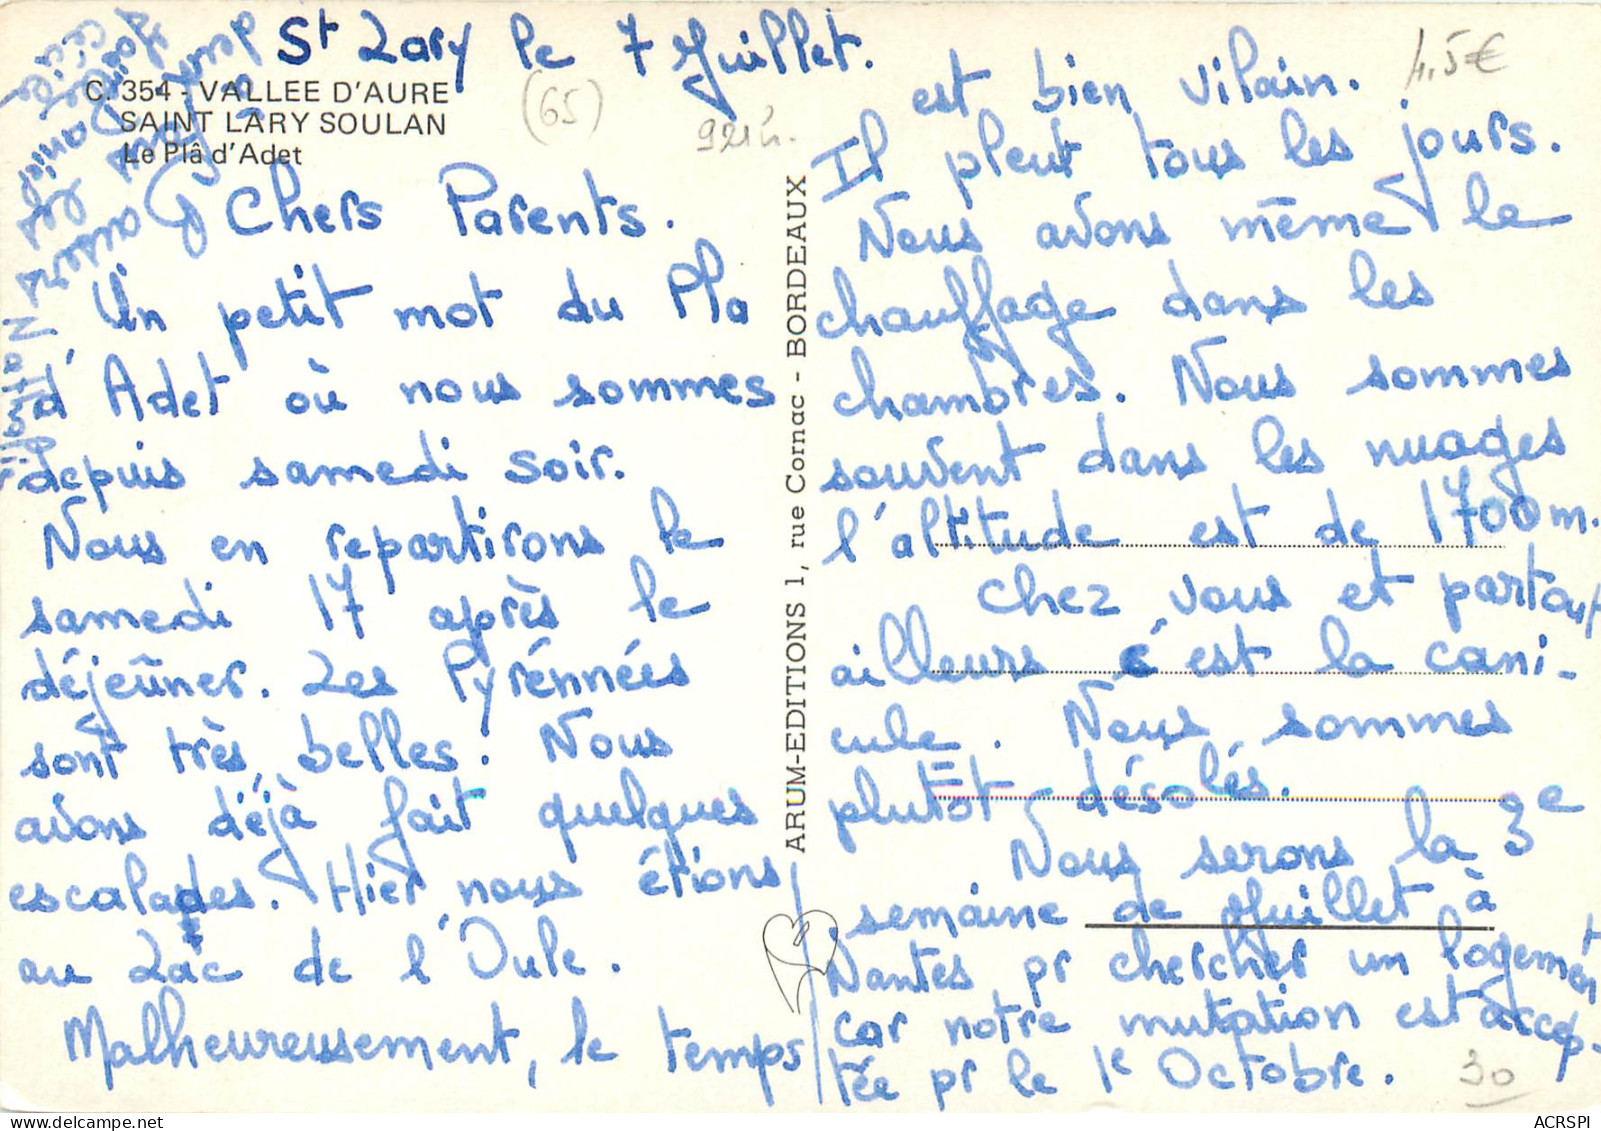 St Lary le 7 Juillet.
C. 354 - VALLEE D'AURE
SAINT LARY SOULAN
Le Plâ d'Adet
(65)
Chers Parents.
Un petit mot du Pla
d'Adet où nous sommes
depuis samedi soir.
Nous en repartirons le
samedi 17 après le
déjeûner. Les Pyrénnées
sont très belles. Nous
avons déjà fait quelques
escalades. Hier nous étions
au Lac de l'Oule.
Malheureusement, le temps
ARUM-EDITIONS 1, rue Cornac - BORDEAUX
4,5€
est bien vilain.
Il pleut tous les jours.
Nous avons même le
chauffage dans les
chambres. Nous sommes
souvent dans les nuages
l'altitude est de 1700m.
Chez vous et partout
ailleurs c'est la cani-
cule. Nous sommes
plutôt désolés.
Nous serons la 3e
semaine de Juillet à
Nantes pr chercher un logement
car notre mutation est accep-
tée pr le 1e Octobre.
30
Bons
Daniel
Nathalie
ACRSPI